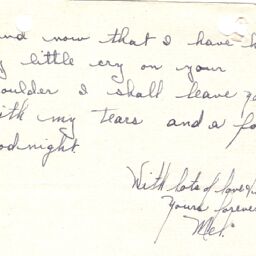 and now that I have h
y little cry on your
oulder I shall leave yo
ith my tears and a fo
odnight.
With lots of love &
Yours forever
Mel.